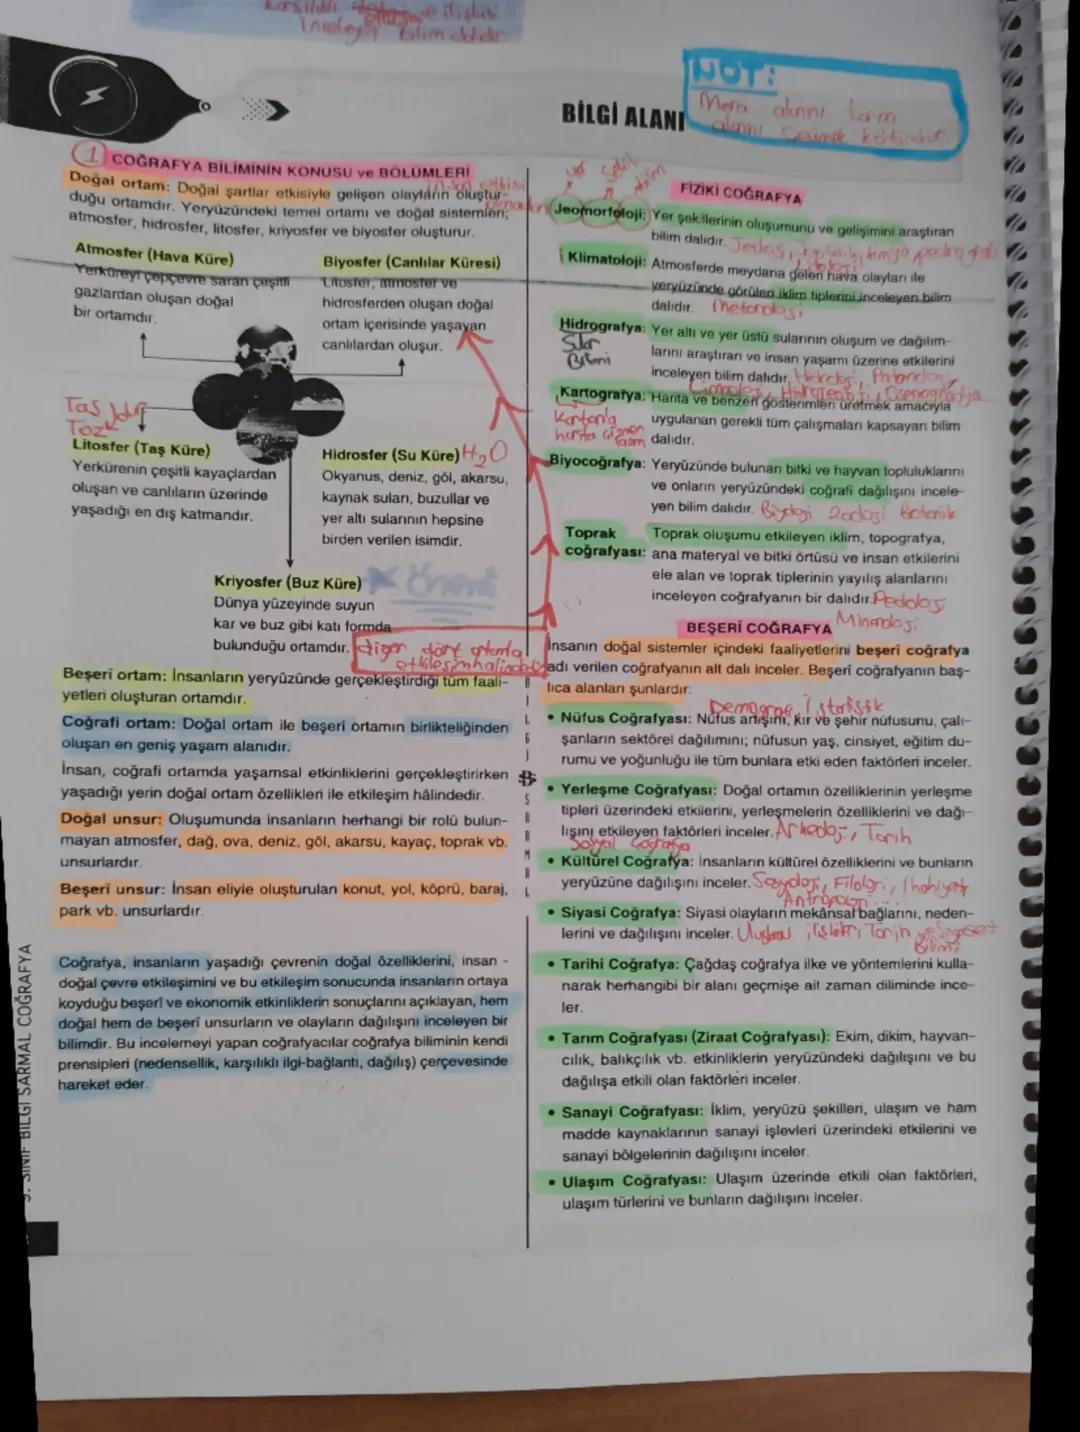 karşılıklı ilişkisi
inceleyen bilim dalıdır.
NOT:
Mera alanını tarım
alanını
BİLGİ ALANI
1 COĞRAFYA BİLİMİNİN KONUSU ve BÖLÜMLERİ
Doğal ortam: Doğal şartlar etkisiyle gelişen olayların oluştur-
insan etkisi olmadan
duğu ortamdır. Yeryüzündeki temel ortamı ve doğal sistemleri;
atmosfer, hidrosfer, litosfer, kriyosfer ve biyosfer oluşturur.
Atmosfer (Hava Küre)
Yerküreyi çepçevre saran çeşitli
gazlardan oluşan doğal
bir ortamdır.
Biyosfer (Canlılar Küresi)
Litosfer, atmosfer ve
hidrosferden oluşan doğal
ortam içerisinde yaşayan
canlılardan oluşur.
Taş
Toz
Litosfer (Taş Küre)
Yerkürenin çeşitli kayaçlardan
oluşan ve canlıların üzerinde
yaşadığı en dış katmandır.
Hidrosfer (Su Küre) H₂O
Okyanus, deniz, göl, akarsu,
kaynak suları, buzullar ve
yer altı sularının hepsine
birden verilen isimdir.
Kriyosfer (Buz Küre)
Dünya yüzeyinde suyun
kar ve buz gibi katı formda
bulunduğu ortamdır.
diğer dört ortamla
etkileşim halindedir
Beşerî ortam: İnsanların yeryüzünde gerçekleştirdiği tüm faali-
yetleri oluşturan ortamdır.
Coğrafi ortam: Doğal ortam ile beşerî ortamın birlikteliğinden
oluşan en geniş yaşam alanıdır.
İnsan, coğrafi ortamda yaşamsal etkinliklerini gerçekleştirirken
yaşadığı yerin doğal ortam özellikleri ile etkileşim hâlindedir.
Doğal unsur: Oluşumunda insanların herhangi bir rolü bulun-
mayan atmosfer, dağ, ova, deniz, göl, akarsu, kayaç, toprak vb.
unsurlardır.
Beşerî unsur: İnsan eliyle oluşturulan konut, yol, köprü, baraj,
park vb. unsurlardır.
Coğrafya, insanların yaşadığı çevrenin doğal özelliklerini, insan -
doğal çevre etkileşimini ve bu etkileşim sonucunda insanların ortaya
koyduğu beşerî ve ekonomik etkinliklerin sonuçlarını açıklayan, hem
doğal hem de beşerî unsurların ve olayların dağılışını inceleyen bir
bilimdir. Bu incelemeyi yapan coğrafyacılar coğrafya biliminin kendi
prensipleri (nedensellik, karşılıklı ilgi-bağlantı, dağılış) çerçevesinde
hareket eder.
9. SINIF BİLGİ SARMAL COĞRAFYA
BİLGİ SARMAL
yer şekil bilim
FİZİKİ COĞRAFYA
Jeomorfoloji: Yer şekillerinin oluşumunu ve gelişimini araştıran
bilim dalıdır.
Klimatoloji: Atmosferde meydana gelen hava olayları ile
yeryüzünde görülen iklim tiplerini inceleyen bilim
dalıdır. Meteoroloji
Hidrografya: Yer altı ve yer üstü sularının oluşum ve dağılım-
larını araştıran ve insan yaşamı üzerine etkilerini
inceleyen bilim dalıdır. Hidroloji,
Sular
Bilimi
Limnoloji, Hidrojeoloji, Osenografya
Kartografya: Harita ve benzeri gösterimleri üretmek amacıyla
uygulanan gerekli tüm çalışmaları kapsayan bilim
dalıdır.
Kartonla
harita çizmen
lazım
Biyocoğrafya: Yeryüzünde bulunan bitki ve hayvan topluluklarını
ve onların yeryüzündeki coğrafi dağılışını incele-
yen bilim dalıdır. Biyoloji Zooloji Botanik
Toprak coğrafyası: Toprak oluşumu etkileyen iklim, topografya,
ana materyal ve bitki örtüsü ve insan etkilerini
ele alan ve toprak tiplerinin yayılış alanlarını
inceleyen coğrafyanın bir dalıdır. Pedoloji
Mineroloji
BEŞERÎ COĞRAFYA
İnsanın doğal sistemler içindeki faaliyetlerini beşerî coğrafya
adı verilen coğrafyanın alt dalı inceler. Beşerî coğrafyanın baş-
lıca alanları şunlardır:
Demografi, İstatistik
• Nüfus Coğrafyası: Nüfus artışını, kır ve şehir nüfusunu, çalı-
şanların sektörel dağılımını; nüfusun yaş, cinsiyet, eğitim du-
rumu ve yoğunluğu ile tüm bunlara etki eden faktörleri inceler.
• Yerleşme Coğrafyası: Doğal ortamın özelliklerinin yerleşme
tipleri üzerindeki etkilerini, yerleşmelerin özelliklerini ve dağı-
lışını etkileyen faktörleri inceler. Arkeoloji, Tarih
Sosyal Coğrafya
• Kültürel Coğrafya: İnsanların kültürel özelliklerini ve bunların
yeryüzüne dağılışını inceler. Sosyoloji, Filoloji, İlahiyat
Antropoloji ...
• Siyasi Coğrafya: Siyasi olayların mekânsal bağlarını, neden-
lerini ve dağılışını inceler. Uluslararası ilişkiler, Tarih ve Siyaset
Bilimi
• Tarihi Coğrafya: Çağdaş coğrafya ilke ve yöntemlerini kulla-
narak herhangibi bir alanı geçmişe ait zaman diliminde ince-
ler.
• Tarım Coğrafyası (Ziraat Coğrafyası): Ekim, dikim, hayvan-
cılık, balıkçılık vb. etkinliklerin yeryüzündeki dağılışını ve bu
dağılışa etkili olan faktörleri inceler.
• Sanayi Coğrafyası: İklim, yeryüzü şekilleri, ulaşım ve ham
madde kaynaklarının sanayi işlevleri üzerindeki etkilerini ve
sanayi bölgelerinin dağılışını inceler.
• Ulaşım Coğrafyası: Ulaşım üzerinde etkili olan faktörleri,
ulaşım türlerini ve bunların dağılışını inceler.